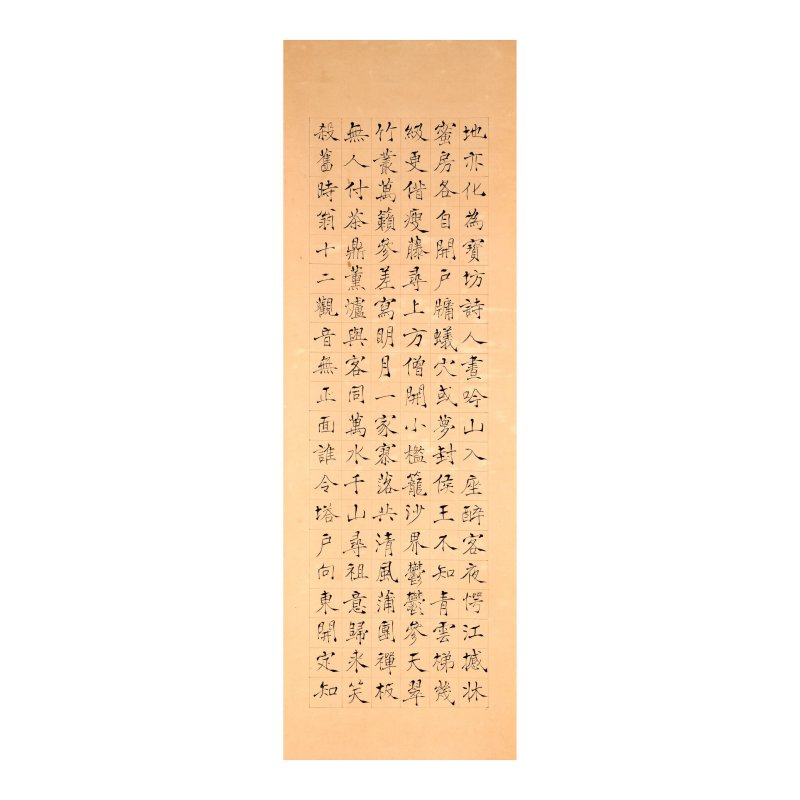 地亦化為寶坊詩人晝吟山入座醉客夜愕江撼牀
蜜房各自開戶牖蟻穴或夢封侯王不知青雲梯幾
級更借瘦藤尋上方僧開小檻籠沙界鬱鬱參天翠
竹叢萬籟參差寫明月一家寥落共清風蒲團禪板
無人付茶鼎薰爐與客同萬水千山尋祖意歸來笑
殺舊時翁十二觀音無正面誰令塔戶向東開定知